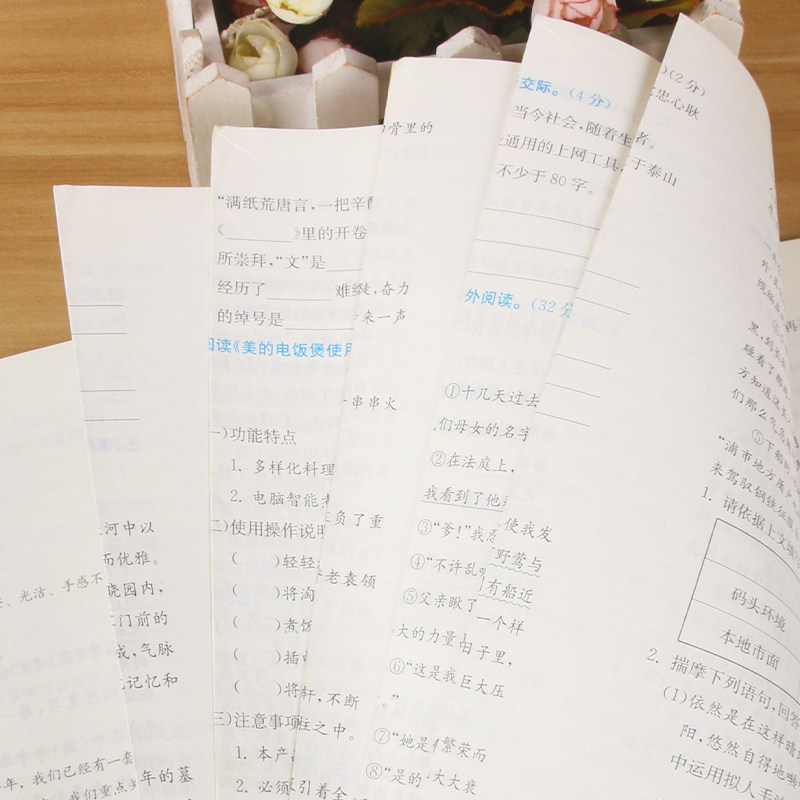 、光洁、手感不
年，我们已经有一套
我们重点
河中以
而优雅。
晓园内，
门前的
我，气脉
记忆和
年的墓
“满纸荒唐言，一把辛
《______》里的开卷
所崇拜，“文”是____
经历了______难
的绰号是____
阅读《美的电饭煲使用
一)功能特点
1. 多样化料理
2. 电脑智能
二)使用操作说明
(  )轻轻
(  )将淘
(  )煮饭
(  )插
(  )将
三)注意事项
1. 本产
2. 必须
骨里的
，奋力
来一声
串串火
负了重
老袁领
轩，不断
柱之中。
引着全
交际。(4分)
当今社会，随着生
通用的上网工具，
不少于80字。
外阅读。(32分
①十几天过去
们母女的名字
②在法庭上，
我看到了他
③“爹！”我
④“不许乱
⑤父亲瞅了
大的力量
⑥“这是我
。”
⑦“她是
⑧“是的
使我发
野莺与
有船近
一个样
由子里，
巨大压
繁荣而
大大衰
)(2分)
忠心耿
者。
于泰山
外
黑，
碰着了那
方知道这
们那么
⑤下船
“浦市地方屠户
来驾驭钢铁
1. 请依据上文填
码头环境
本地市面
2. 揣摩下列语句，回答
(1)依然是在这样晴
阳，悠然自得地啭
中运用拟人手法